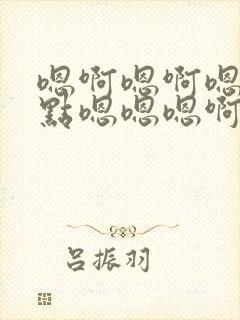 嗯啊嗯啊嗯
點嗯嗯嗯啊
吕振羽